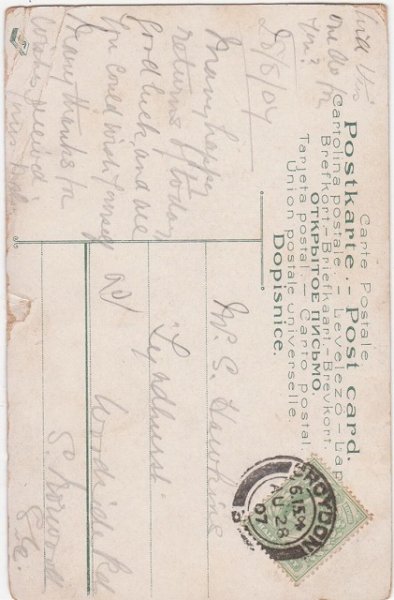 Carte Postale
Postkarte. — Post card.
Cartolina postale — Levelező-Lap
Brefkort.—Briefkaart.—Brevkort.
ОТКРЫТОЕ ПИСЬМО.
Tarjeta postal. — Carto postal.
Union postale universelle.
Dopisnice.
Will this
one do for
you?
28/8/07
Many happy
returns of today
Good luck and all
you could wish yourself
Many thanks for
cards received
Mr. S. Hawkins
"Lyndhurst"
Woodside Rd
S. Norwood
S.E.
CROYDON
6.15
AU 28
07